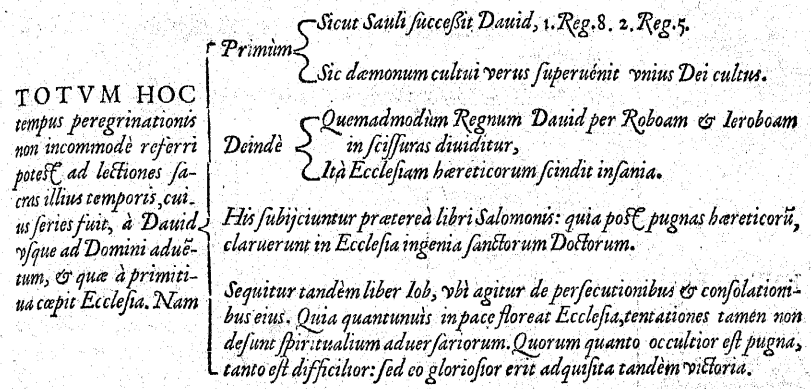 TOTVM HOC
tempus peregrinationis
non incommodè referri
potest ad lectiones sa-
cras illius temporis, cui-
us series fuit, à Dauid
vsque ad Domini aduẽ-
tum, & quæ à primiti-
ua cœpit Ecclesia. Nam
Primùm
Sicut Sauli successit Dauid, 1. Reg. 8. 2. Reg. 5.
Sic dæmonum cultui verus superuénit vnius Dei cultus.
Deindè
Quemadmodùm Regnum Dauid per Roboam & Ieroboam
in scissuras diuiditur,
Ità Ecclesiam hæreticorum scindit insania.
His subijciuntur prætereà libri Salomonis: quia post pugnas hæreticorũ,
claruerunt in Ecclesia ingenia sanctorum Doctorum.
Sequitur tandèm liber Iob, vbì agitur de persecutionibus & consolationi-
bus eius. Quia quantunuìs in pace floreat Ecclesia, tentationes tamen non
desunt spiritualium aduersariorum. Quorum quanto occultior est pugna,
tanto est difficilior: sed eo gloriosior erit adquisita tandèm victoria.